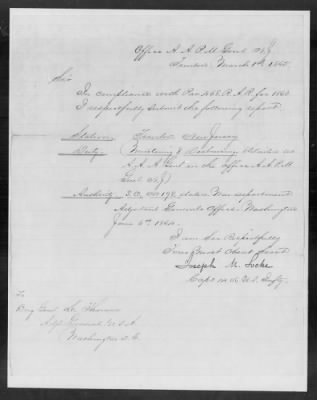 Office A. A. P. M. Genl. N.J.
Trenton March 1st 1865.
Sir
In compliance with Par 468 R. A. R. for 1863
I respectfully submit the following report.
Station, Trenton New Jersey
Duty, Mustering & Disbursing. Detailed as
A. A. A. Genl in the Office A. A. P. M.
Genl N.J.
Authority, S. O. No 198 dated War department
Adjutant General's Office. Washington
June 6th 1864.
I am Sir Respectfully
Your Most Obedt Servt
Joseph M. Locke
Capt 14 U.S. Infty.
To
Brig Genl L. Thomas
Adjt General U.S.A
Washington D.C.